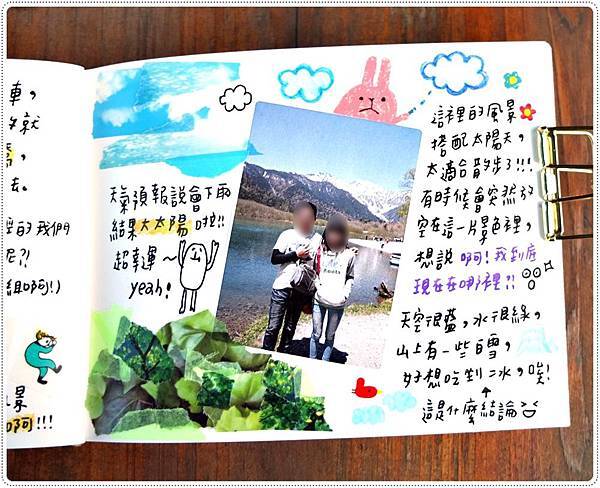 車，
就
，
去。
裡的我們
呢？！
組啊！）
景
啊！！！
天氣預報說會下雨
結果大太陽 啦！！
超幸運～
yeah！
這裡的風景
搭配太陽天，
太適合散步了！！！
有時候會突然放
空在這一片景色裡，
想說 啊！我到底
現在在哪裡？！
天空很藍，水很綠，
山上有一些白雪，
好想吃到冰，唉！
這是什麼結論